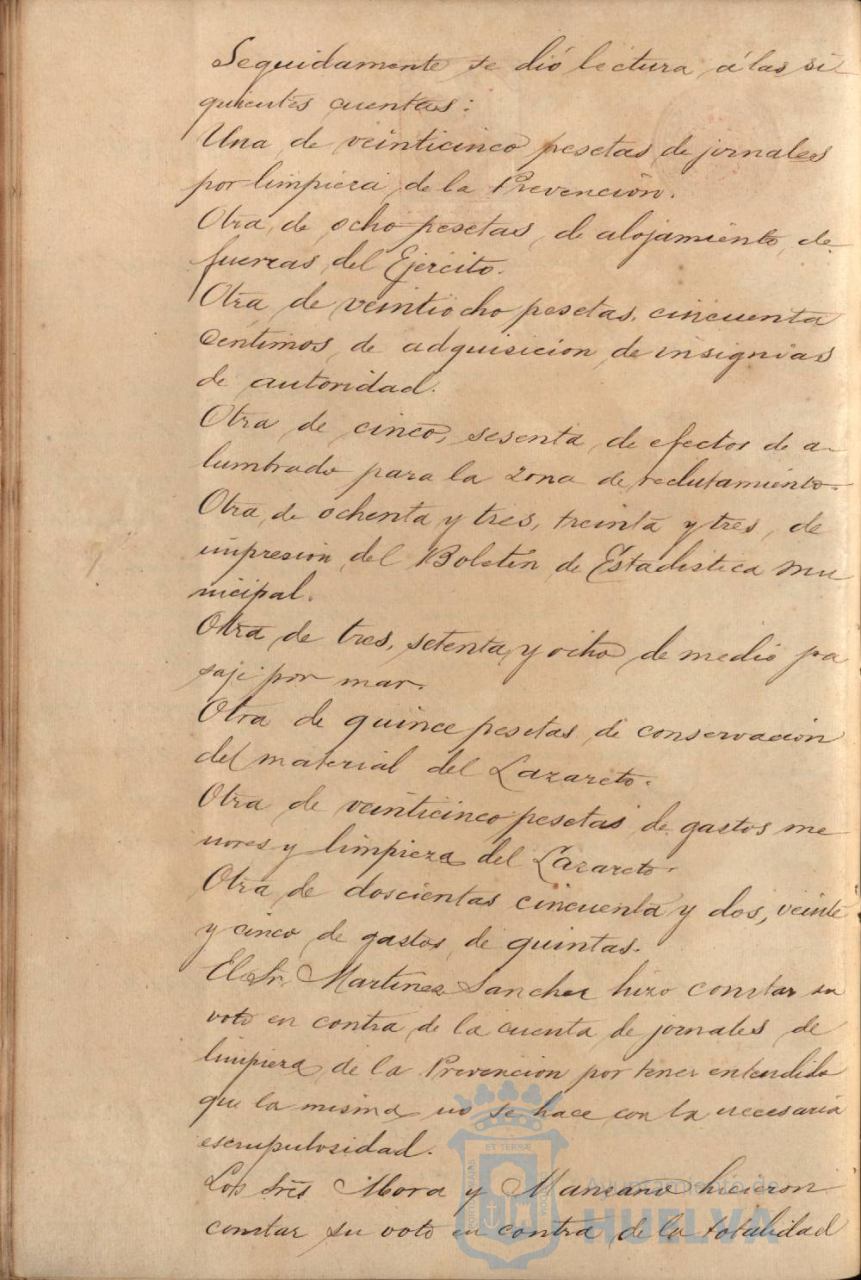 Seguidamente se dió lectura á las si
guientes cuentas:
Una de veinticinco pesetas de jornales
por limpieza de la Prevención.
Otra de ocho pesetas de alojamiento de
fuerzas del Ejército.
Otra de veintiocho pesetas, cincuenta
centimos de adquisicion de insignias
de autoridad.
Otra de cinco, sesenta de efectos de a-
lumbrado para la zona de reclutamiento.
Otra de ochenta y tres, treinta y tres, de
impresión del Boletín de Estadistica mu
nicipal.
Otra de tres, setenta y ocho de medio pa
saje por mar.
Otra de quince pesetas de conservación
del material del Lazareto.
Otra de veinticinco pesetas de gastos me
nores y limpieza del Lazareto.
Otra de doscientas cincuenta y dos, veinte
y cinco de gastos de quintas.
El Sr. Martínez Sanchez hizo constar su
voto en contra de la cuenta de jornales de
limpieza de la Prevencion por tener entendido
que la misma no se hace con la necesaria
escrupulosidad.
Los Sres Mora y Manzano hicieron
constar su voto en contra de la totalidad
Ayuntamiento de
HUELVA